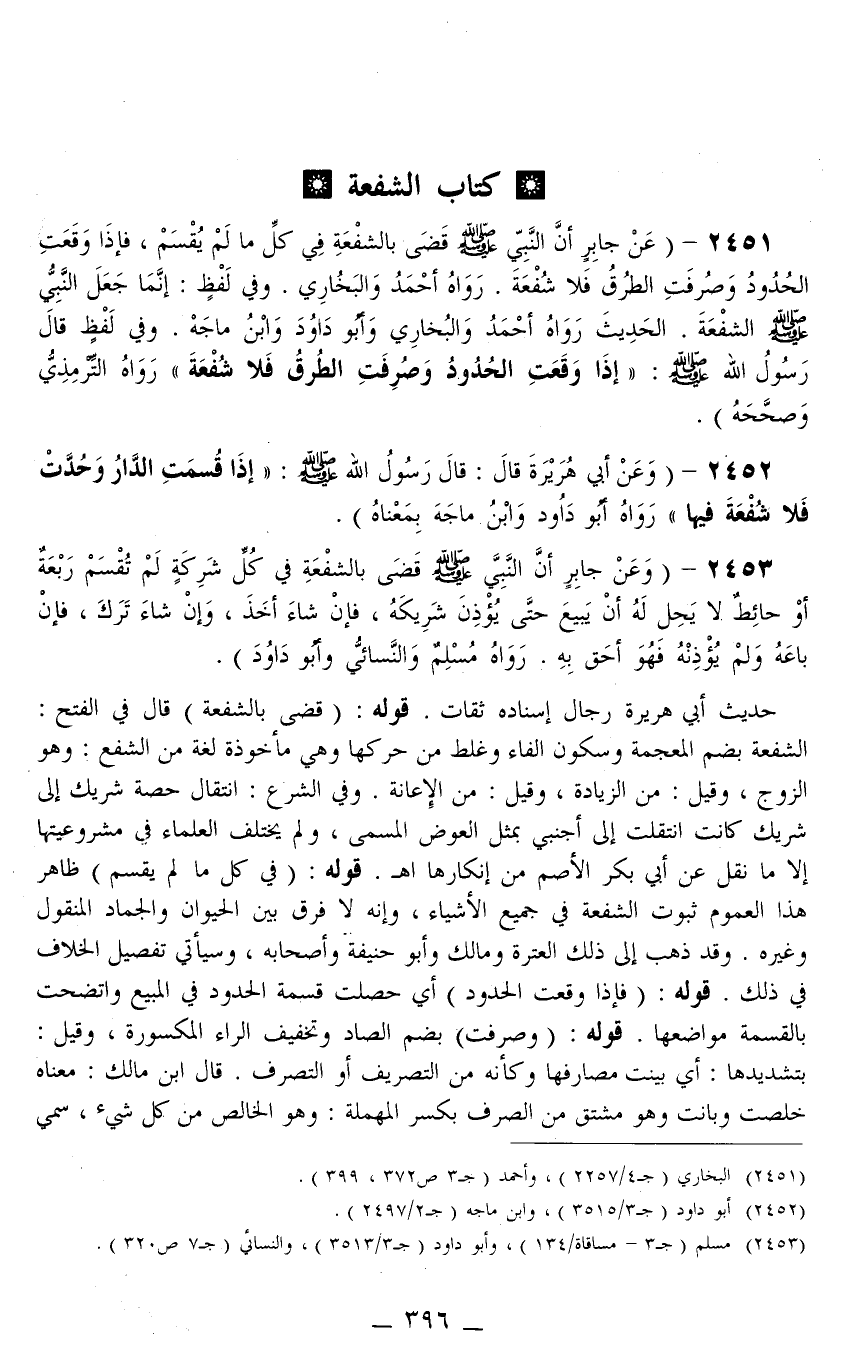 كتاب الشفعة
٢٤٥١ – ( عَنْ جابِرٍ أنَّ النَّبِيّ ﷺ قَضَى بالشفْعَةِ فِي كلِّ ما لَمْ يُقْسَمْ ، فإذَا وَقَعَتِ
الحُدُودُ وَصُرفَتِ الطرُقُ فَلا شُفْعَةَ . رَوَاهُ أحْمَدُ وَالبَخُارِي . وفي لَفْظٍ : إنَّمَا جَعَلَ النَّبِيُّ
ﷺ الشفْعَةَ . الحَدِيثَ رَوَاهُ أحْمَدُ وَالبُخاري وَأبُو دَاوُدَ وَابْنُ ماجَهْ . وفي لَفْظٍ قالَ
رَسُولُ الله ﷺ : « إذَا وَقَعَتِ الحُدُودُ وَصُرِفَتِ الطُرقُ فَلا شُفْعَةَ » رَوَاهُ التِّرْمِذِيُّ
وَصحَّحَهُ ) .
٢٤٥٢ – ( وَعَنْ أبي هُرَيْرَةَ قالَ : قالَ رَسُولُ الله ﷺ : « إذَا قُسمَتِ الدَّارُ وَحُدَّتْ
فَلا شُفْعَةَ فيها » رَوَاهُ أبُو دَاُود وَابْنُ ماجَهَ بِمَعْناهُ ) .
٢٤٥٣ – ( وَعَنْ جابِرٍ أنَّ النَّبَيَّ ﷺ قَضَى بالشفْعَةِ في كُلِّ شَرِكَةٍ لَمْ تُقْسَمْ رَبْعَةٌ
أوْ حائِطٌ لا يَحِل لَهُ أنْ يَبيعَ حتَّى يُؤْذِنَ شَرِيكَهُ ، فإنْ شاءَ أخَذَ ، وَإنْ شاءَ تَرَكَ ، فإنْ
باعَهُ وَلمْ يُؤْذِنْهُ فَهُوَ أحَق بِهِ . رَوَاهُ مُسْلِمٌ وَالنَّسائيُّ وأبُو دَاوُدَ ) .
حديث أبي هريرة رجال إسناده ثقات . قوله : ( قضى بالشفعة ) قال في الفتح :
الشفعة بضم المعجمة وسكون الفاء وغلط من حركها وهي مأخوذة لغة من الشفع : وهو
الزوج ، وقيل : من الزيادة ، وقيل : من الإعانة . وفي الشرع : انتقال حصة شريك إلى
شريك كانت انتقلت إلى أجنبي بمثل العوض المسمى ، ولم يختلف العلماء في مشروعيتها
إلا ما نقل عن أبي بكر الأصم من إنكارها اهـ . قوله : ( في كل ما لم يقسم ) ظاهر
هذا العموم ثبوت الشفعة في جميع الأشياء ، وإنه لا فرق بين الحيوان والجماد المنقول
وغيره . وقد ذهب إلى ذلك العترة ومالك وأبو حنيفة وأصحابه ، وسيأتي تفصيل الخلاف
في ذلك . قوله : ( فإذا وقعت الحدود ) أي حصلت قسمة الحدود في المبيع واتضحت
بالقسمة مواضعها . قوله : ( وصرفت) بضم الصاد وتخفيف الراء المكسورة ، وقيل :
بتشديدها : أي بينت مصارفها وكأنه من التصريف أو التصرف . قال ابن مالك : معناه
خلصت وبانت وهو مشتق من الصرف بكسر المهملة : وهو الخالص من كل شيء ، سمي
(٢٤٥١) البخاري ( جـ٤/٢٢٥٧ ) ، وأحمد ( جـ٣ ص٣٧٢ ، ٣٩٩ ) .
(٢٤٥٢) أبو داود ( جـ٣/٣٥١٥ ) ، وابن ماجه ( جـ٢/٢٤٩٧ ) .
(٢٤٥٣) مسلم ( جـ٣ – مساقاة/١٣٤ ) ، وأبو داود ( جـ٣/٣٥١٣ ) ، والنسائي ( جـ٧ ص٣٢٠ ) .
– ٣٩٦ –